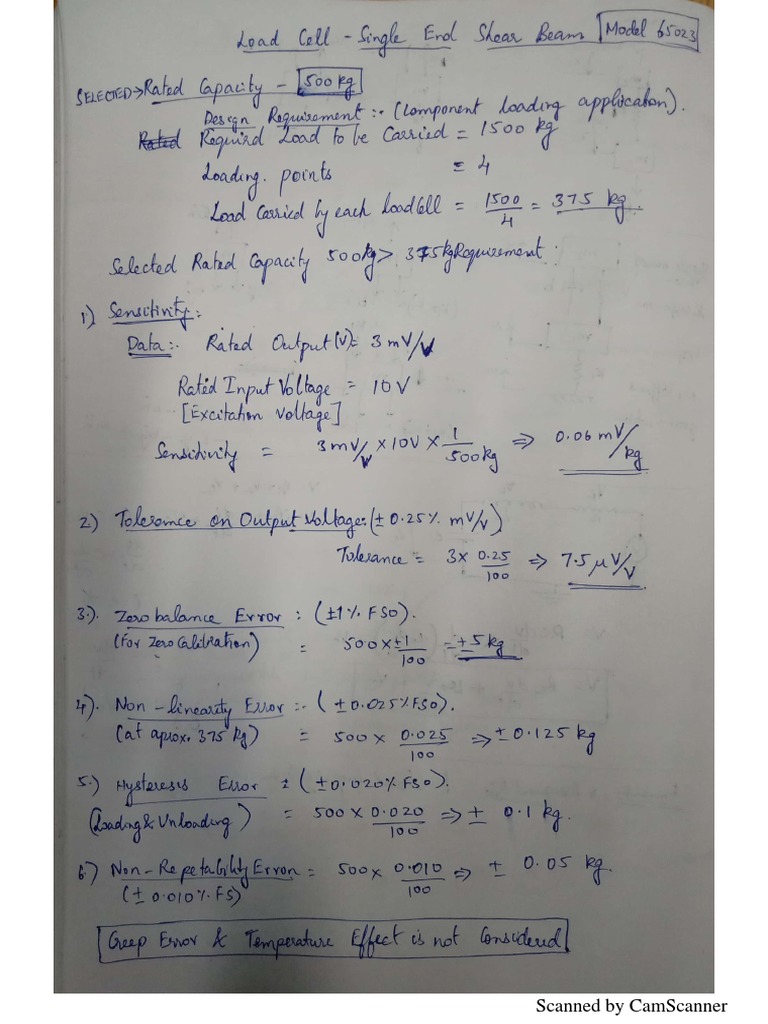 Load Cell - Single End Shear Beam Model 65023
SELECTED→Rated Capacity - 500kg
Design Requirement :- (Component loading application).
Rated Required Load to be Carried = 1500 kg
Loading. points = 4
Load Carried by each LoadCell = 1500/4 = 375 kg.
Selected Rated Capacity 500kg > 375kg Requirement.
1) Sensitivity:
Data:- Rated Output(V)= 3 mV/V
Rated Input Voltage = 10V
[Excitation Voltage]
Sensitivity = 3 mV/V × 10V × 1/500kg ⇒ 0.06 mV/kg
2) Tolerance on Output Voltage: (± 0.25% mV/V).
Tolerance = 3 × 0.25/100 ⇒ 7.5 μV/V
3.). Zero balance Error : (±1% FSO).
(For Zero Calibration) = 500 × ±1/100 = ±5 kg
4). Non-linearity Error :- (± 0.025% FSO).
(at aprox. 375 kg) = 500 × 0.025/100 ⇒ ± 0.125 kg
5.) Hysteresis Error : (± 0.020% FSO).
(Loading & Unloading) = 500 × 0.020/100 ⇒ ± 0.1 kg.
6.) Non-Repetability Error = 500 × 0.010/100 ⇒ ± 0.05 kg.
(± 0.010% FS)
Creep Error & Temperature Effect is not Considered
Scanned by CamScanner